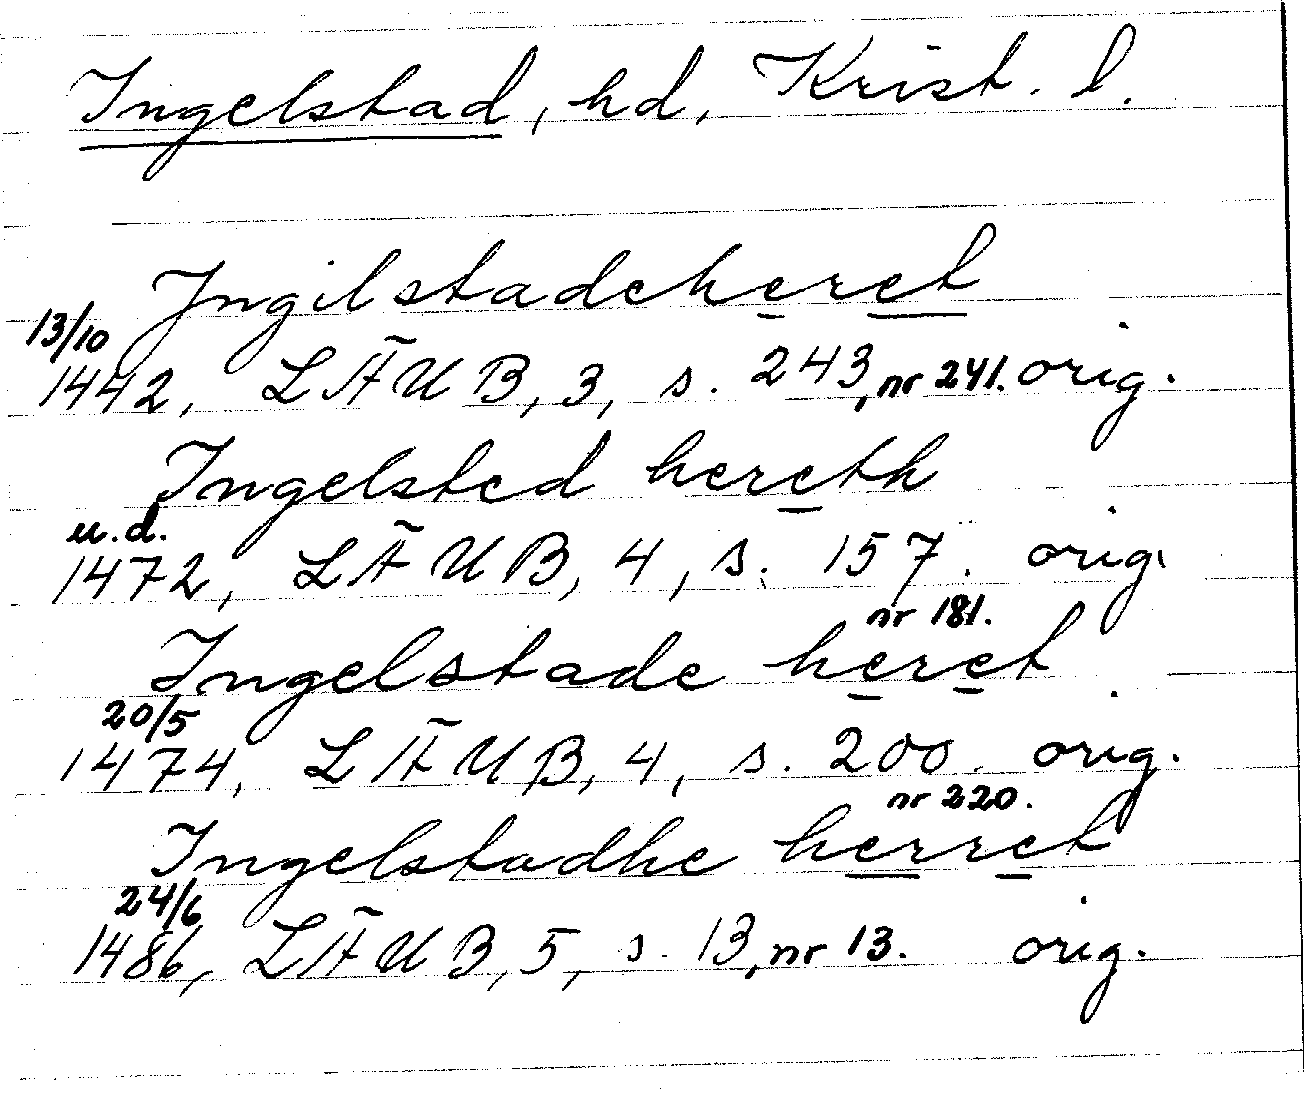 Ingelstad, hd, Krist. l.
Ingilstadeheret
13/10
1442, LÄUB, 3, s. 243, nr 241. orig.
Ingelsted hereth
u.d.
1472, LÄUB, 4, s. 157. orig.
nr 181.
Ingelstade heret
20/5
1474, LÄUB, 4, s. 200. orig.
nr 220.
Ingelstadhe herret
24/6
1486, LÄUB, 5, s. 13, nr 13. orig.